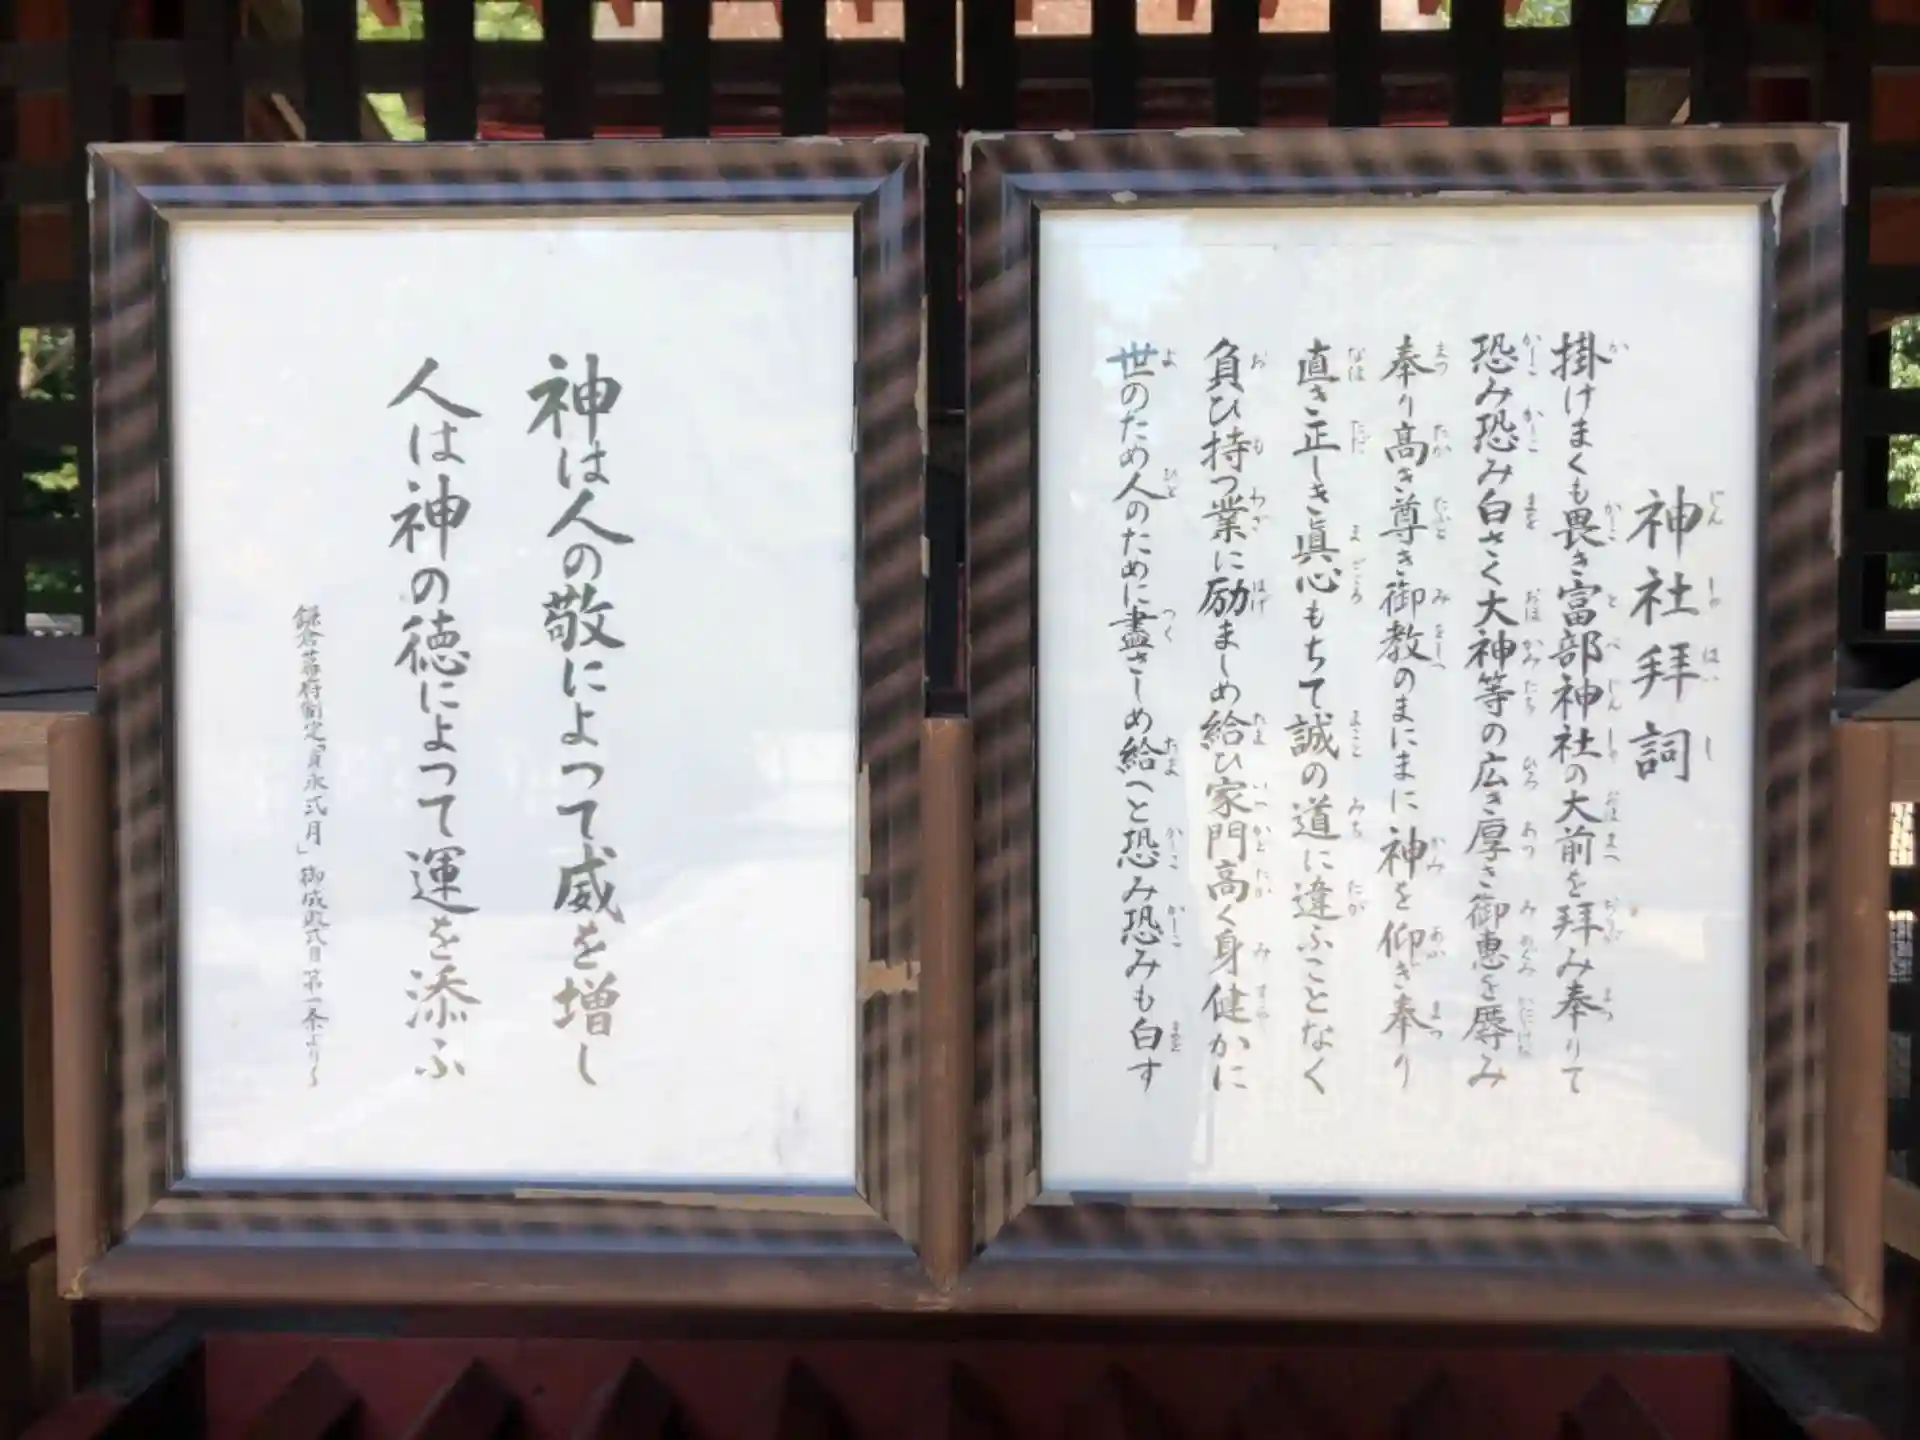 神社拝詞
掛けまくも畏き富部神社の大前を拝み奉りて
恐み恐み白さく大神等の広き厚き御恵を辱み
奉り高き尊き御教のまにまに神を仰ぎ奉り
直き正しき眞心もちて誠の道に違ふことなく
負ひ持つ業に励ましめ給ひ家門高く身健かに
世のため人のために盡さしめ給へと恐み恐みも白す
神は人の敬によって威を増し
人は神の徳によって運を添ふ
鎌倉幕府制定「貞永弐月」御成敗式目 第一条より〜